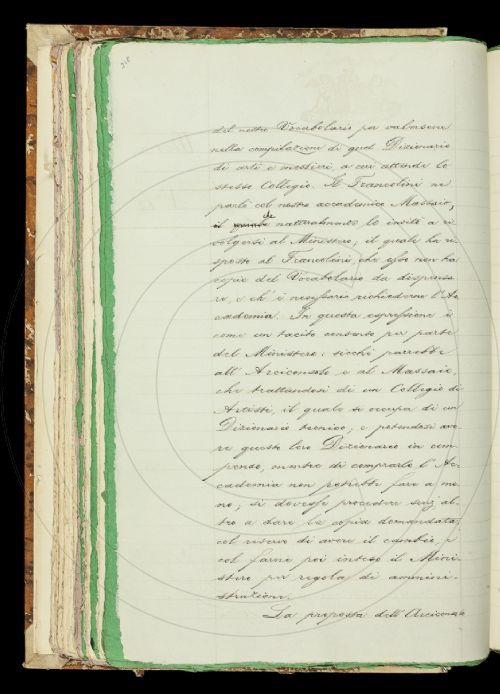 218
del nostro Vocabolario per valersene
nella compilazione di quel Dizionario
di arti e mestieri, a cui attende lo
stesso Collegio. Il Francolini ne
parlò col nostro accademico Massaio,
il quale naturalmente lo invitò a ri
volgersi al Ministero; il quale ha ri
sposto al Francolini, che esso non ha
copie del Vocabolario da dispensa
re, e ch'è necessario richiederne l'Ac
cademia. In questa espressione è
come un tacito consenso per parte
del Ministero: sicchè parrebbe
all'Arciconsolo e al Massaio,
che trattandosi di un Collegio di
Artisti, il quale si occupa di un
Dizionario tecnico; e potendosi ave
re questo loro Dizionario in com
penso, mentre di comprarlo l'Ac
cademia non potrebbe fare a me
no; si dovesse procedere senz'al
tro a dare la copia domandata,
col riserve di avere il cambio, e
col farne poi inteso il Mini
stero per regola di ammini
strazione.
La proposta dell'Arciconsolo